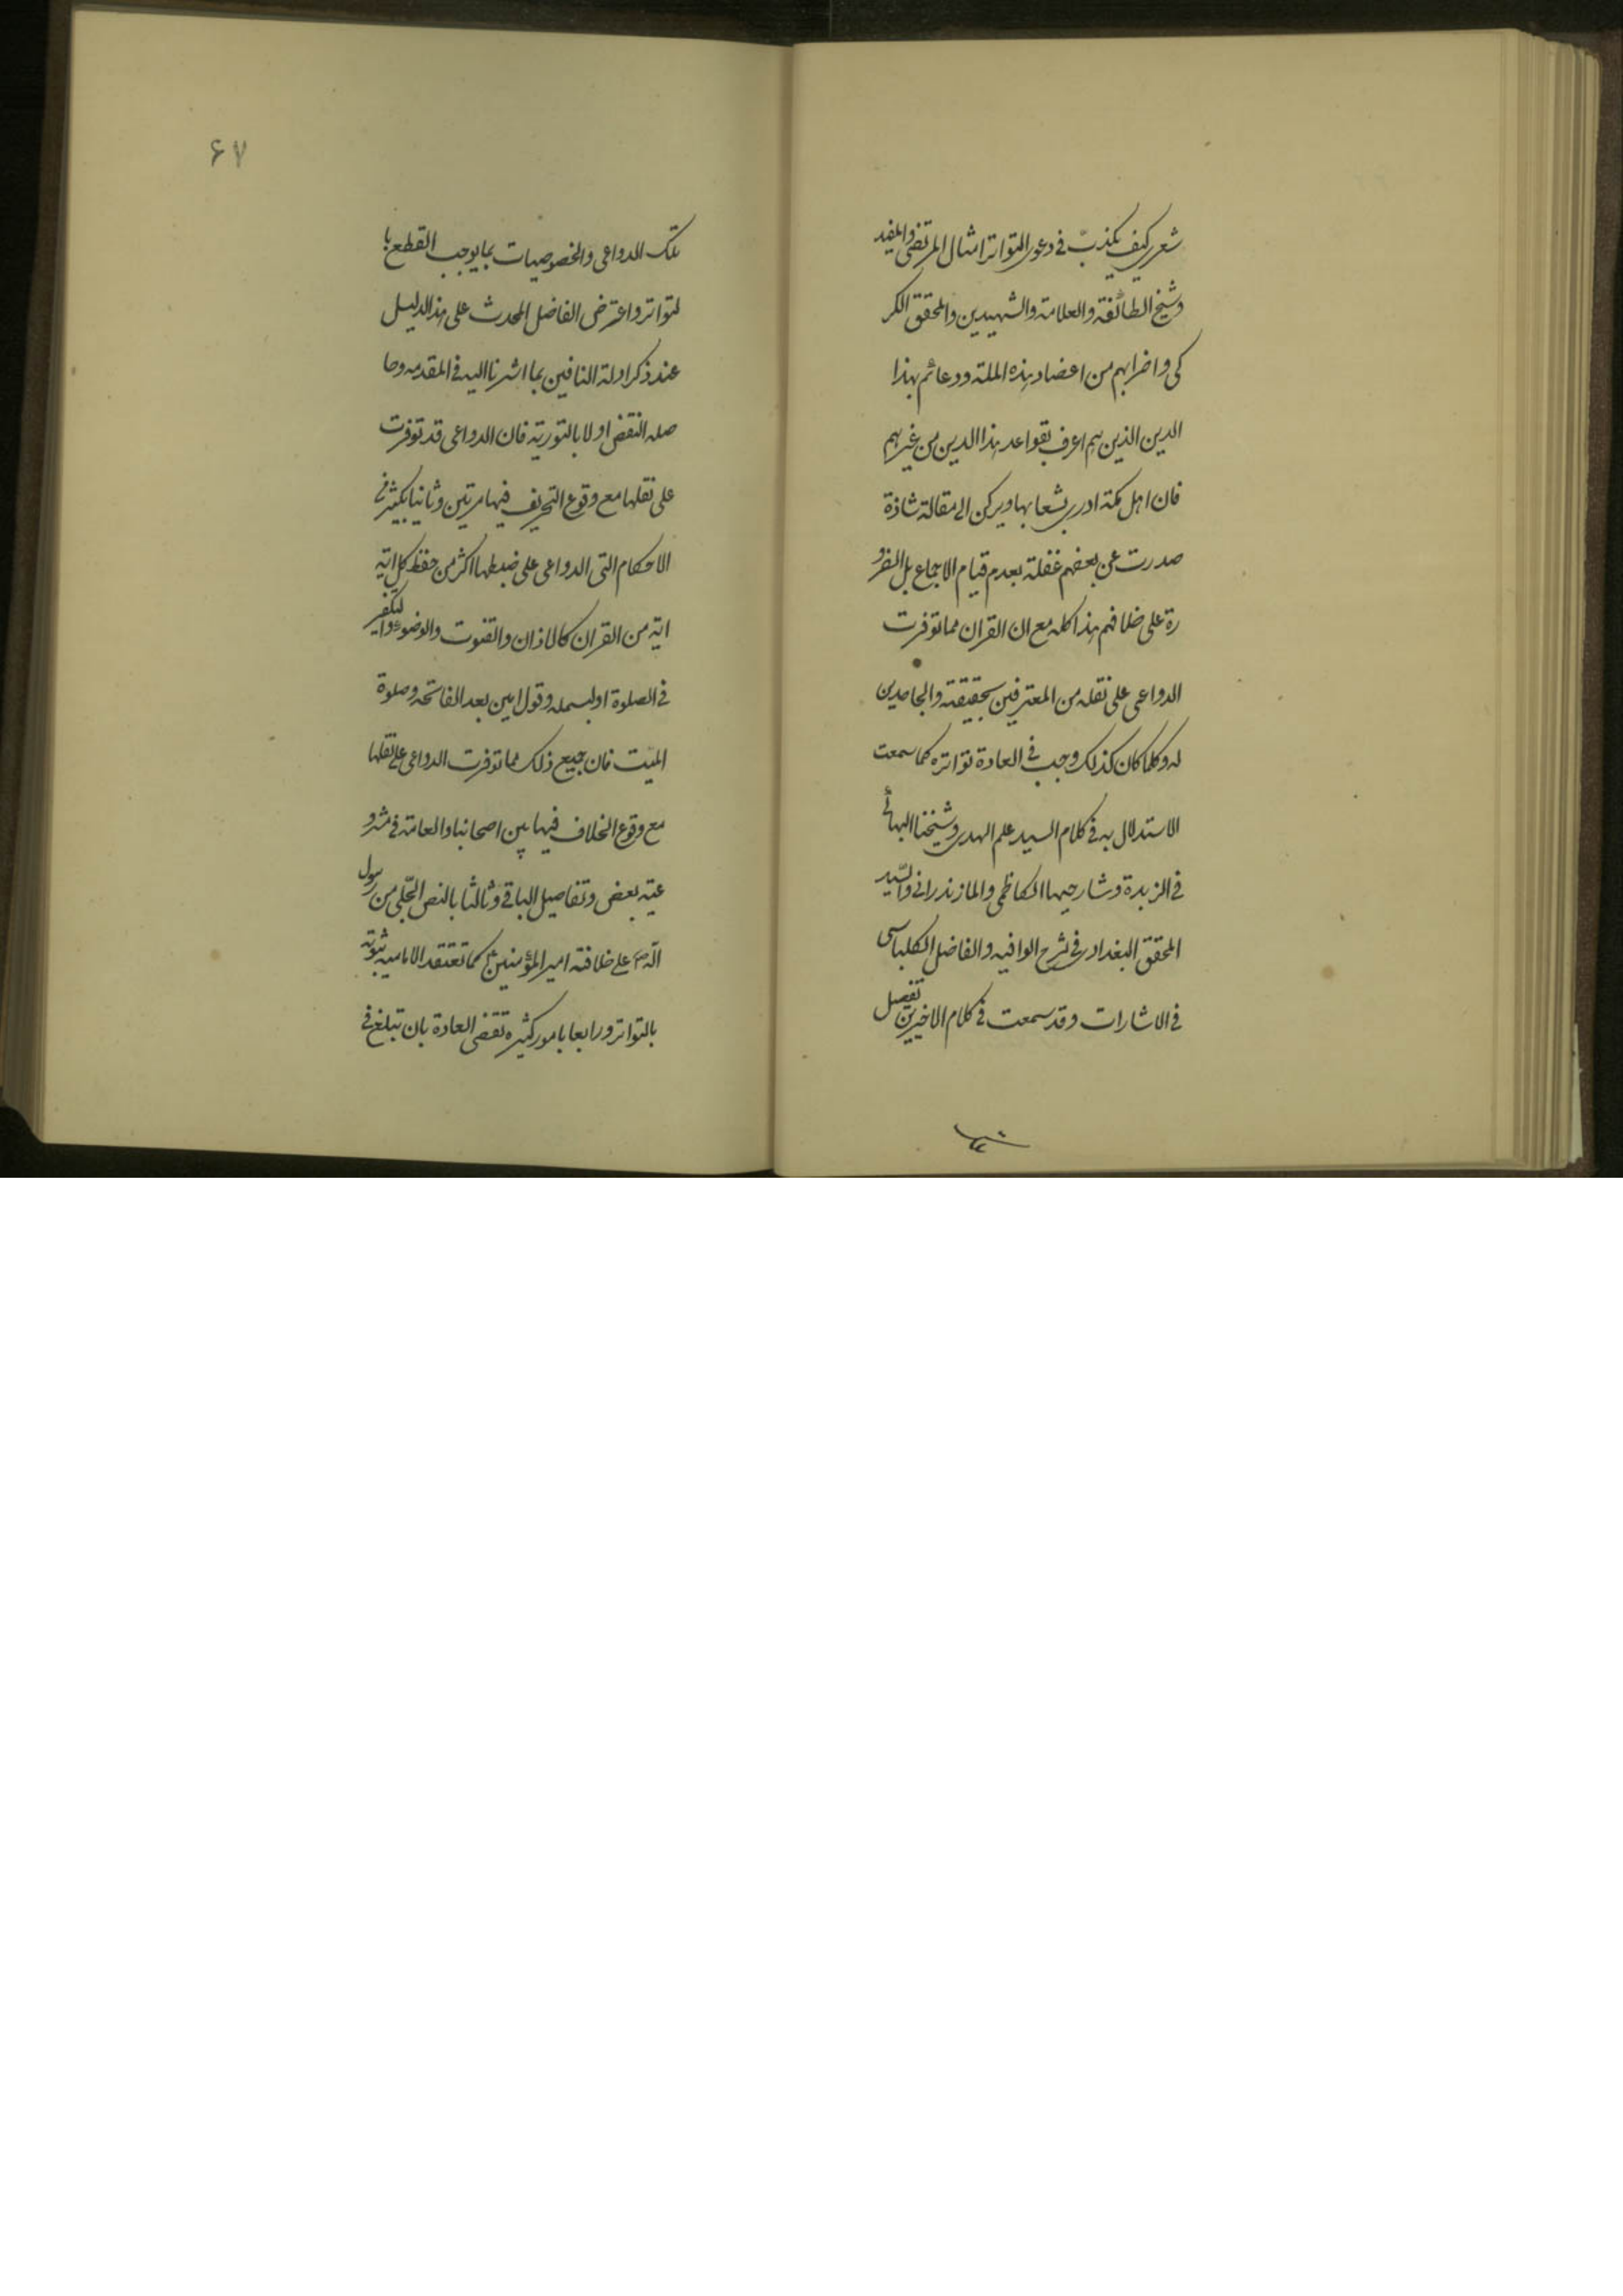 شعری کیف یکذب فی دعوی التواتر امثال المرتضی والمفید
وشیخ الطائفة والعلامة والشهیدین والمحقق الکر
کی واضرابهم من اعضاد هذه الملة ودعائم هذا
الدین الذین هم اعرف بقواعد هذا الدین من غیرهم
فان اهل مکة ادری بشعابها ویرکن الی مقالة شاذة
صدرت عن بعضهم غفلة بعدم قیام الاجماع بل الضرو
رة علی خلافهم هذا کله مع ان القران مما توفرت
الدواعی علی نقله من المعترفین بحقیقته والجاحدین
له وکلما کان کذلک وجب فی العادة تواتره کما سمعت
الاستدلال به فی کلام السید علم الهدی وشیخنا البهائی
فی الزبدة وشارحیها الکاظمی والمازندرانی والسّید
المحقق البغدادی فی شرح الوافیه والفاضل الکلباسی
فی الاشارات وقد سمعت فی کلام الاخیرین تفصیل
تلک
۶۷
تلک الدواعی والخصوصیات بما یوجب القطع با
لتواتر واعترض الفاضل المحدث علی هذا الدلیل
عند ذکر ادلة النافین بما اشرنا الیه فی المقدمه وحا
صله النقض اولا بالتوریة فان الدواعی قد توفرت
علی نقلها مع وقوع التحریف فیها مرتین وثانیا بکثیر من
الاحکام التی الدواعی علی ضبطها اکثر من حفظ کل ایة
ایة من القران کالاذان والقنوت والوضوء والتکفیر
فی الصلوة او لبسمله وقول امین بعد الفاتحه وصلوة
المیّت فان جمیع ذلک مما توفرت الدواعی علی نقلها
مع وقوع الخلاف فیها بین اصحابنا والعامة فی مشرو
عیة بعض وتفاصیل الباقی وثالثا بالنص الجّلی من رسول
الله ص علی خلافة امیر المؤمنین ع کما تعتقد الامامیه ثبوته
بالتواتر ورابعا بامور کثیره تقضی العادة بان تبلغ فی